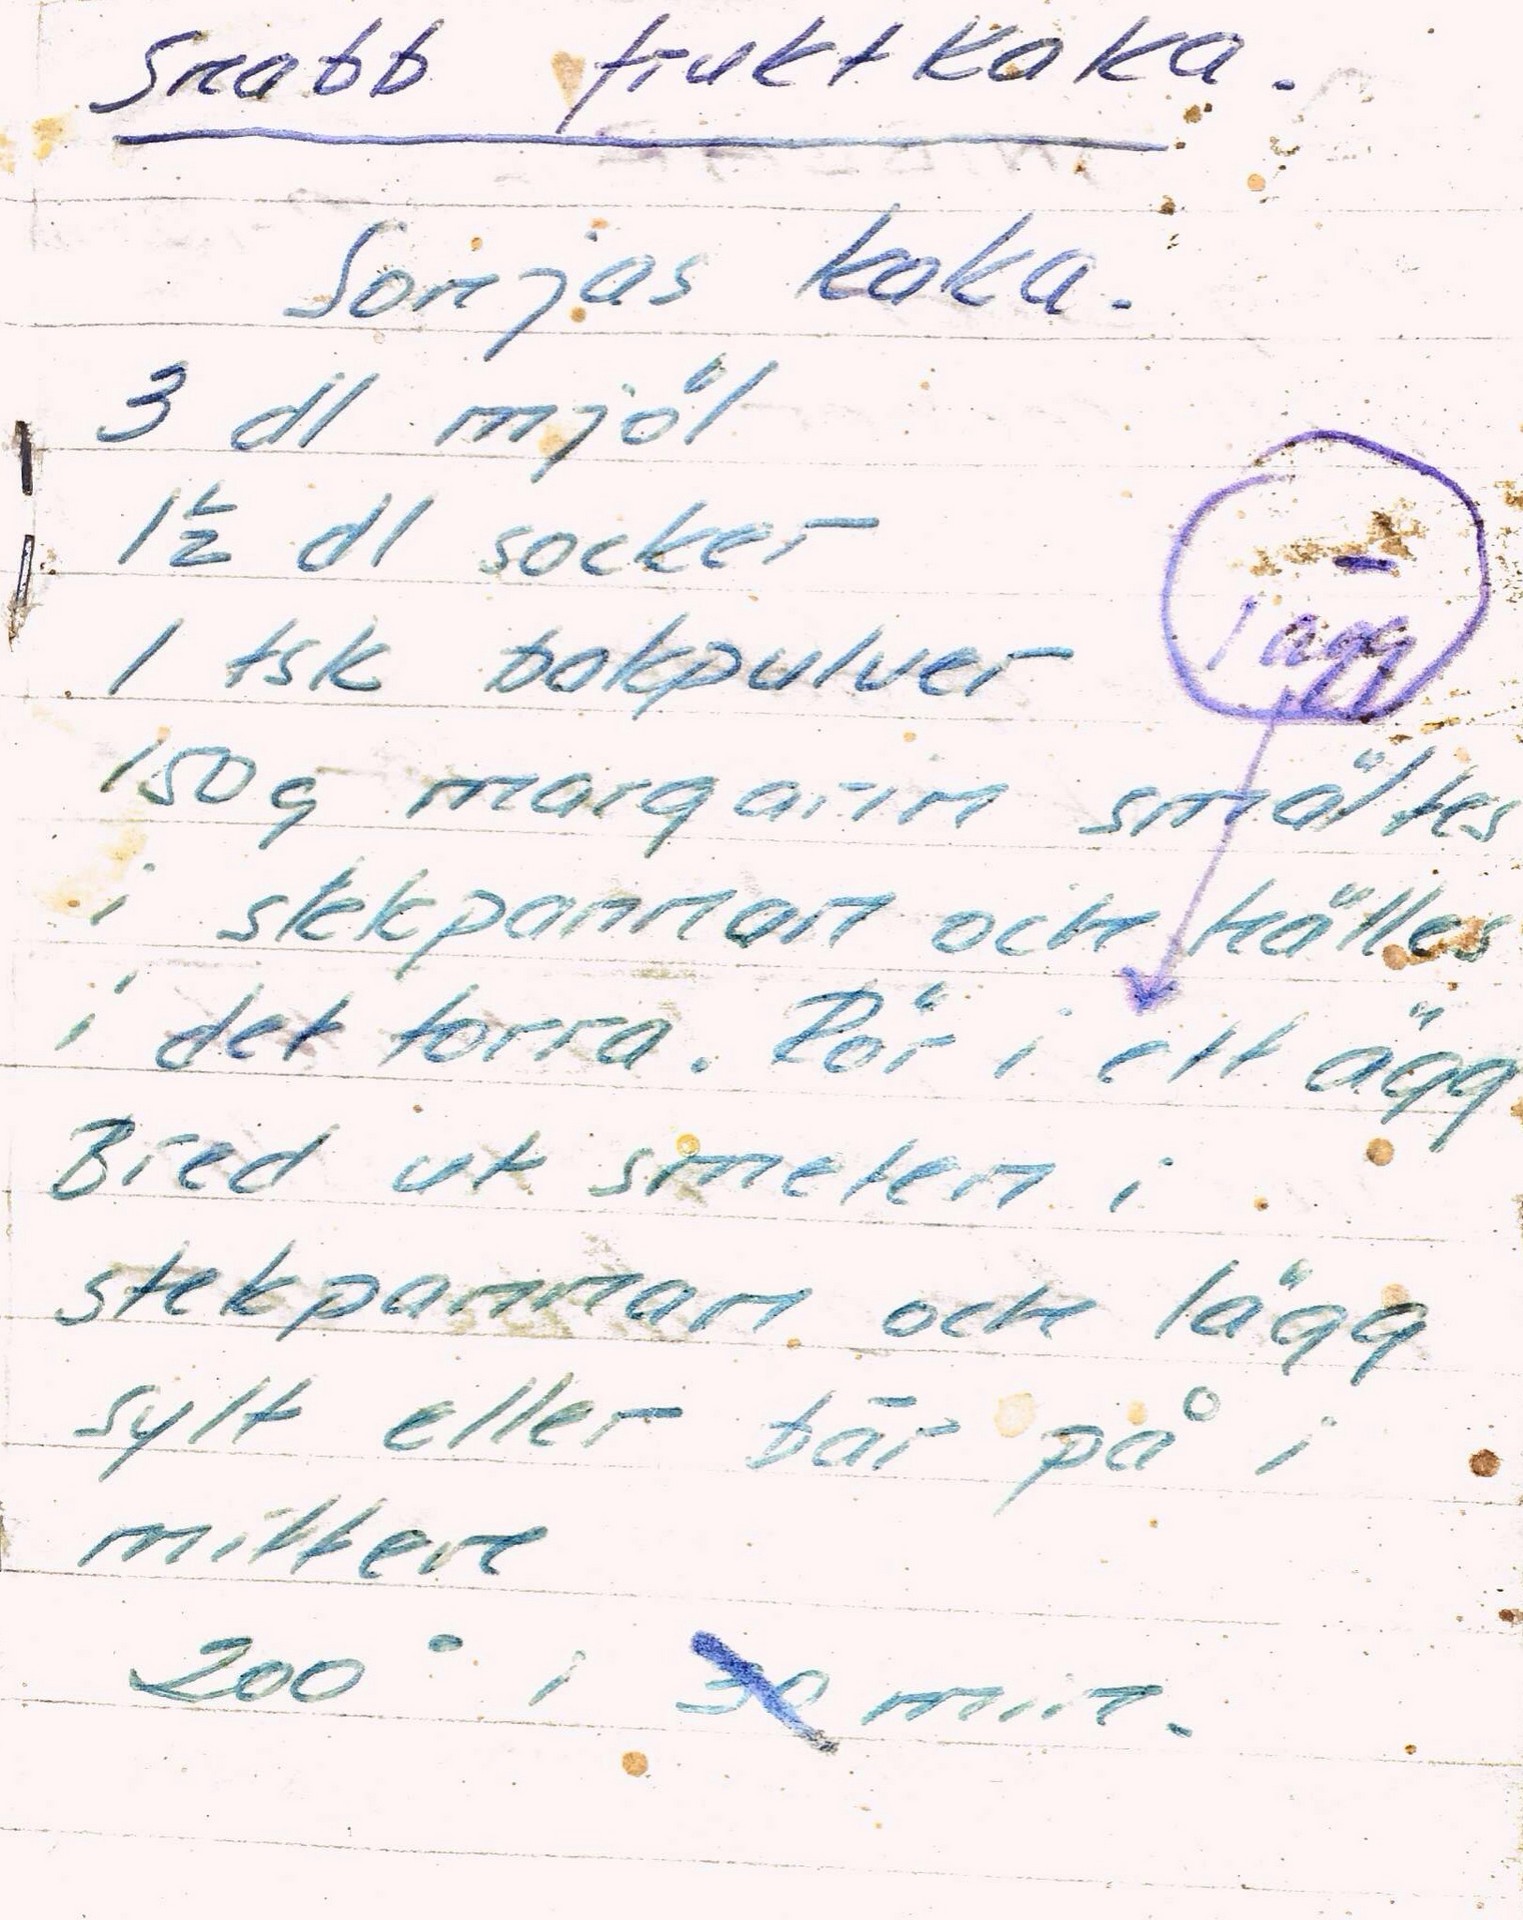 Snabb fruktkaka.
Sonjas kaka.
3 dl mjöl
1½ dl socker
1 tsk bakpulver
1 ägg
150 g margarin smältes
i stekpannan och hälles
i det torra. Rör i ett ägg
Bred ut smeten i
stekpannan och lägg
sylt eller bär på i
mitten
200° i 30 min.